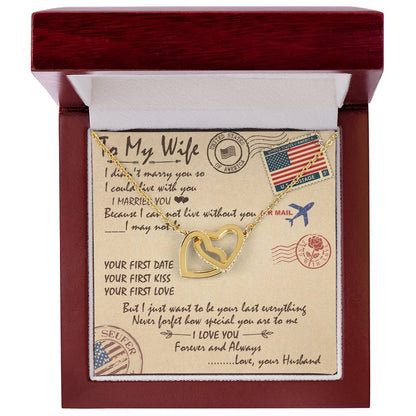 To My Wife
I didn't marry you so
I could live with you
I MARRIED YOU
Because I can not live without you
I may not
YOUR FIRST DATE
YOUR FIRST KISS
YOUR FIRST LOVE
But I just want to be your last everything
Never forfet how special you are to me
I LOVE YOU
Forever and Always
.........Love, your Husband
UNITED STATES
OF AMERICA
US POSTAGE
AIR MAIL